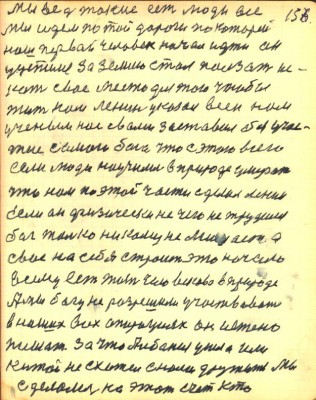 мы вед такие ест люди все 158.
мы идем по той дороги по которой
наш первай человек начал идти он
за землю стал ползат ис-
кат свое место для того чтобы
жит нам Ленин указал всем нам
ученым нас свами заставил бы учас-
тие самого бога что с этого всего
если люди научились в природе умират
что нам по этой части сделал ленин
если он физически не чего не трудился
бог толко никому не мешает а
свое на себя строит это начало
всему ест этот чел века в природе
А мы богу не разрешили участвоват
в наших всех операциях он истено
за что Албания ушла или
китай не схотел снами дружит Мы
сделалис на этот счет кто